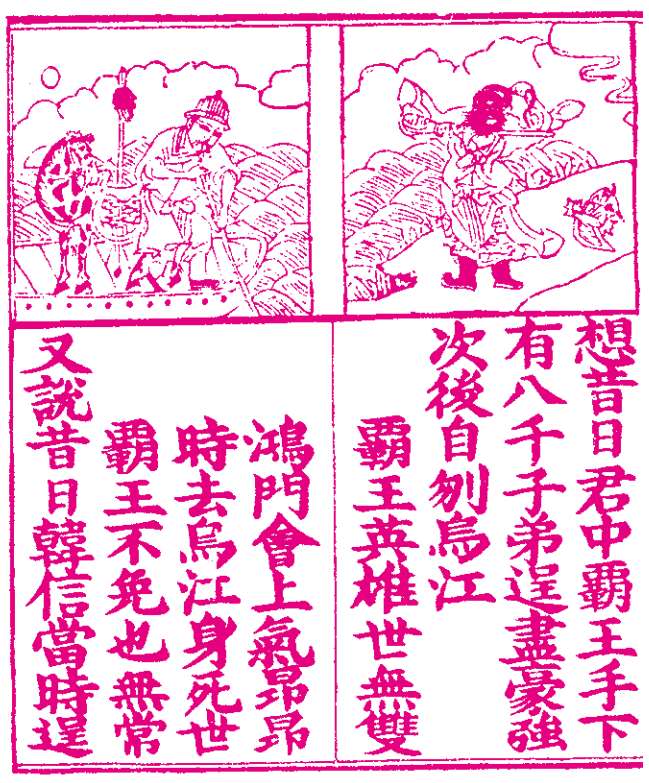 想昔日君中覇王手下
有八千子弟逞盡豪強
次後自刎烏江
覇王英雄世無雙
鴻門會上氣昂昂
時去烏江身死世
覇王不免也無常
又說昔日韓信當時逞